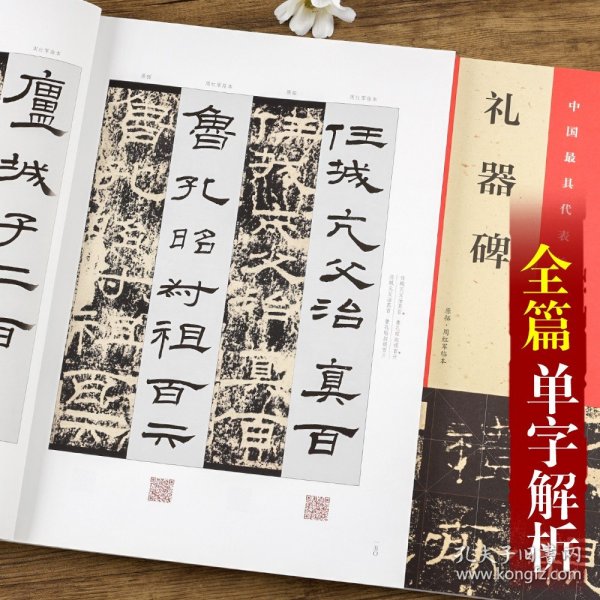 周红军临本
原帖
周红军临本
原帖
周红军临本
任城亢父治真百
任城亢父治真百
魯孔昭叔祖百
魯孔昭叔祖百
廬城子二百
一五〇
中国最具代表
礼器碑
原帖·周红军临本
全篇
单字解析
孔夫子旧书网
www.kongfz.com